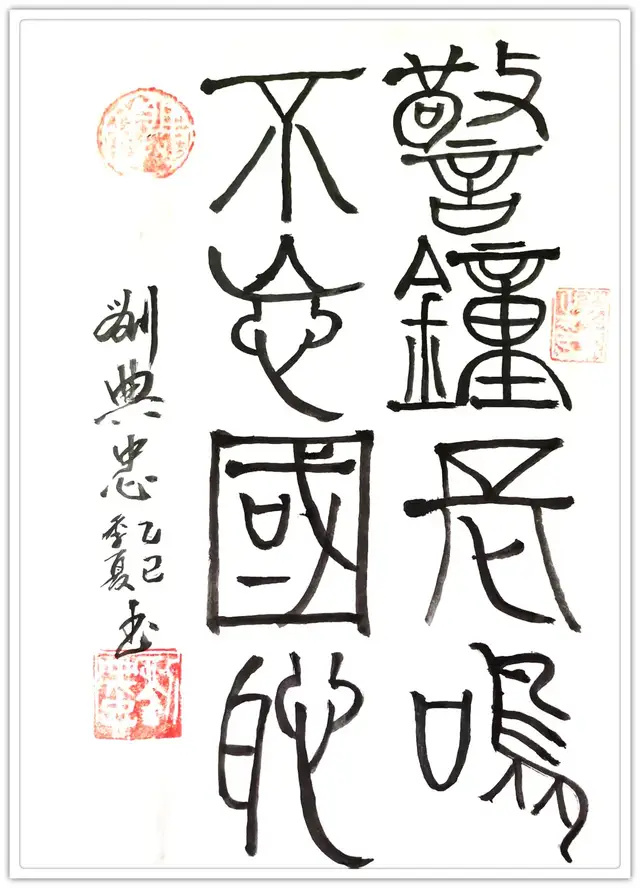 警鐘長鳴
不忘國恥
劉典忠
乙巳
季夏
书